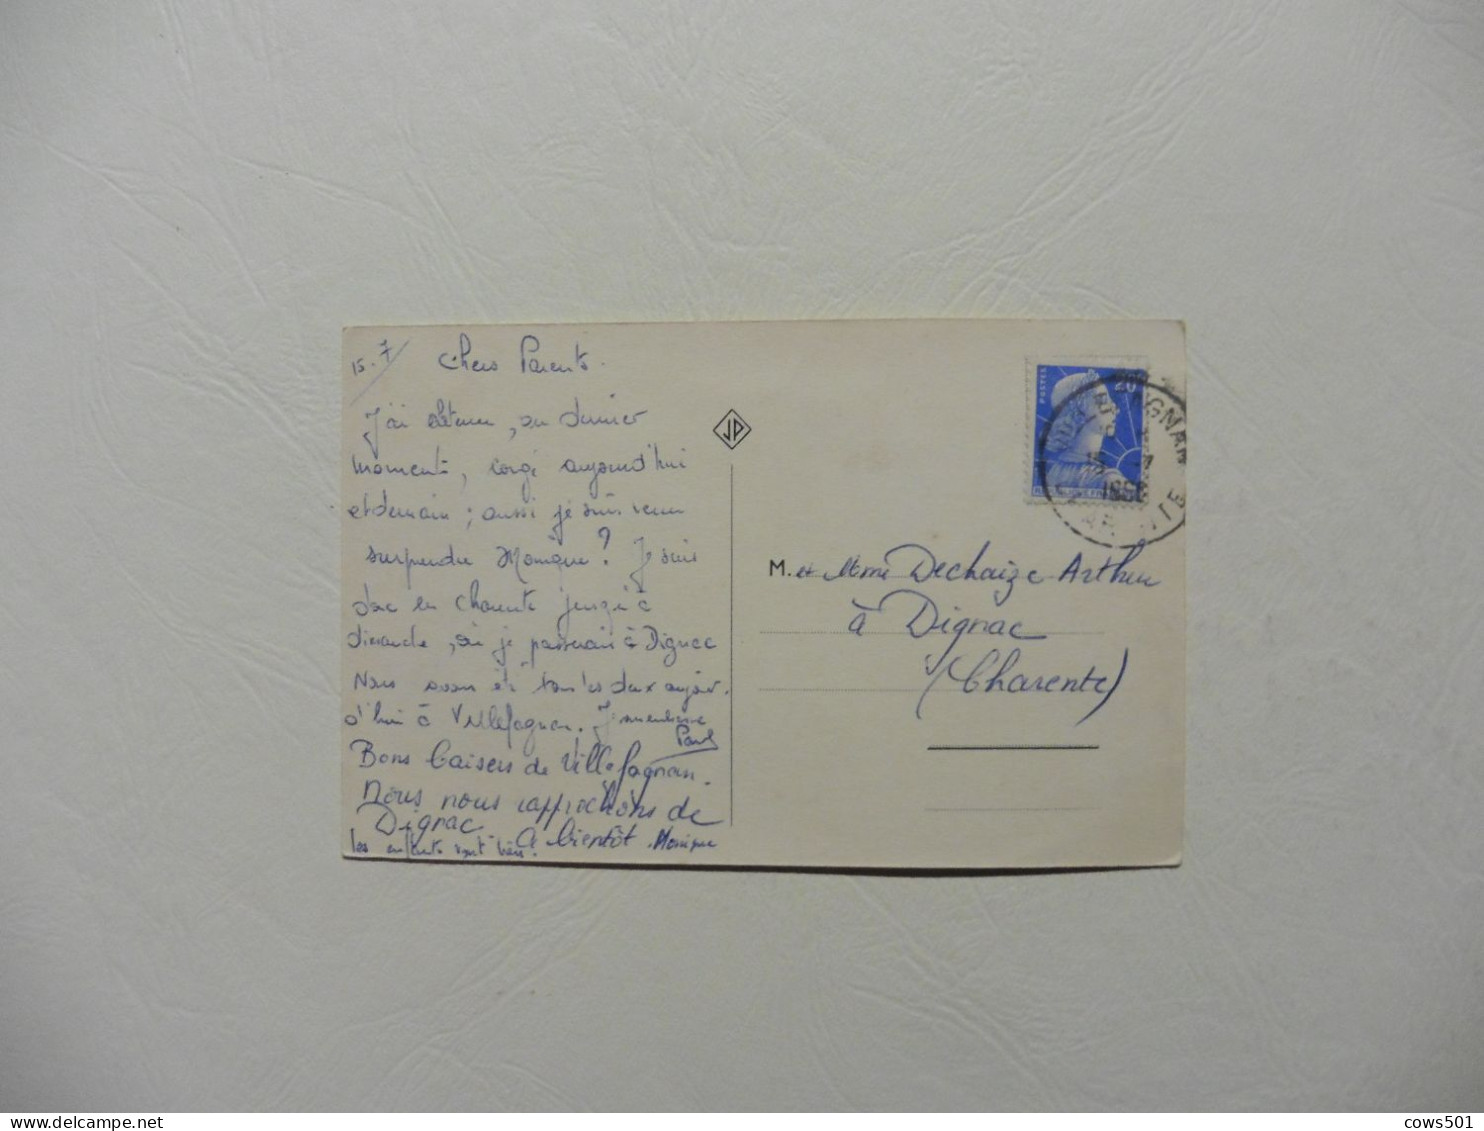 15.7 Chers Parents.
J'ai obtenu, au dernier
moment, congé aujourd'hui
et demain ; aussi je suis venu
surprendre Monique ? Je suis
donc en Charente jusqu'à
dimanche, où je passerai à Dignac
Nous avons été tous les deux aujour-
d'hui à Villefagnan. Je vous embrasse
Paul
Bons baisers de Villefagnan.
Nous nous rapprochons de
Dignac. A bientôt. Monique
les enfants sont bien.
JD
POSTES 20F
VILLEFAGNAN
15 -7
CHARENTE
M. et Mme Dechaize Arthur
à Dignac
(Charente)
cows501